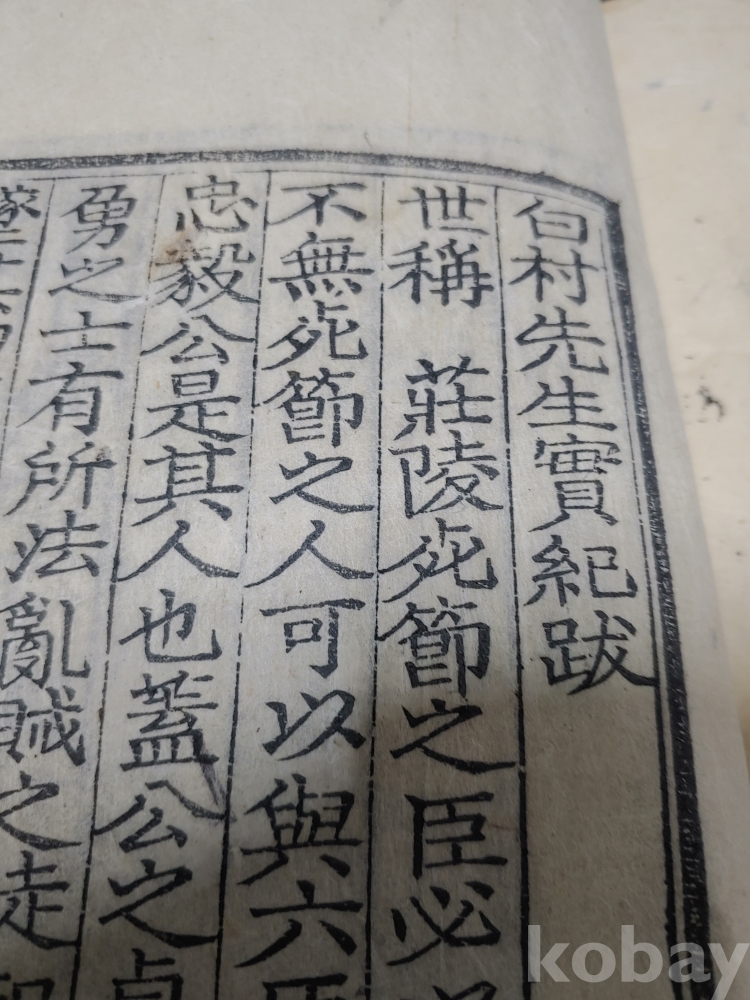 白村先生實紀跋
世稱 莊陵死節之臣必
不無死節之人可以與六臣
忠毅公是其人也蓋公之貞
勇之士有所法亂賊之徒
kobay